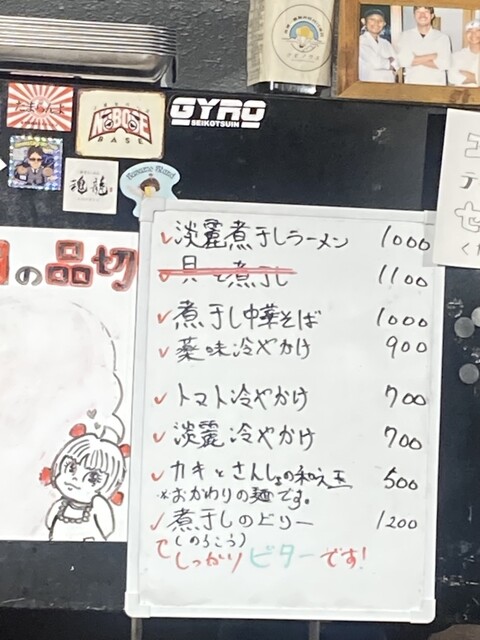 たまらんよ
NOBOSE
BASE
GYRO
SEIKOTSUIN
魂龍
の品切
淡麗煮干しラーメン 1000
貝と煮干し 1100
煮干し中華そば 1000
薬味冷やかけ 900
トマト冷やかけ 700
淡麗冷やかけ 700
カキとさんしょの和え玉 500
※おかわりの麺です。
煮干しのどリー 1200
しっかりビターです!